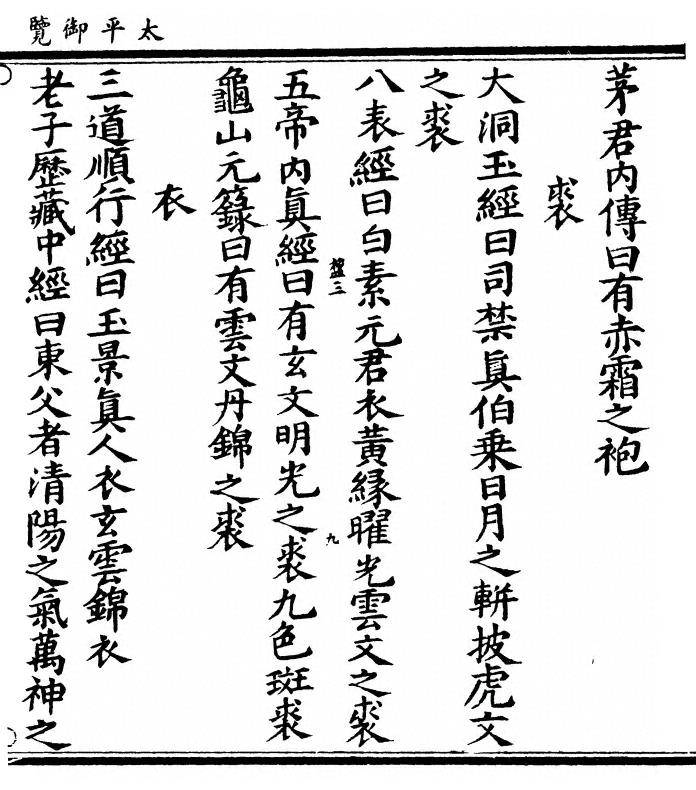 太平御覽
茅君内傳曰有赤霜之袍
裘
大洞玉經曰司禁真伯乗日月之軿披虎文
之裘
八表經曰白素元君衣黃緣曜光雲文之裘
五帝内眞經曰有玄文明光之裘九色斑裘
龜山元籙曰有雲文丹錦之裘
衣
三道順行經曰玉景眞人衣玄雲錦衣
老子歷藏中經曰東父者清陽之氣萬神之
三
九